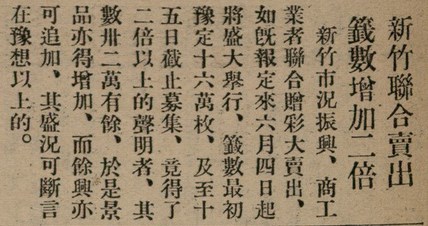 新竹聯合賣出
籤數增加二倍
新竹市況振興、商工
業者聯合贈彩大賣出、
如既報定來六月四日起
將盛大舉行、籤數最初
豫定十六萬枚、及至十
五日截止募集、竟得了
二倍以上的聲明者、其
數卅二萬有餘、於是景
品亦得增加、而餘興亦
可追加、其盛況可斷言
在豫想以上的。